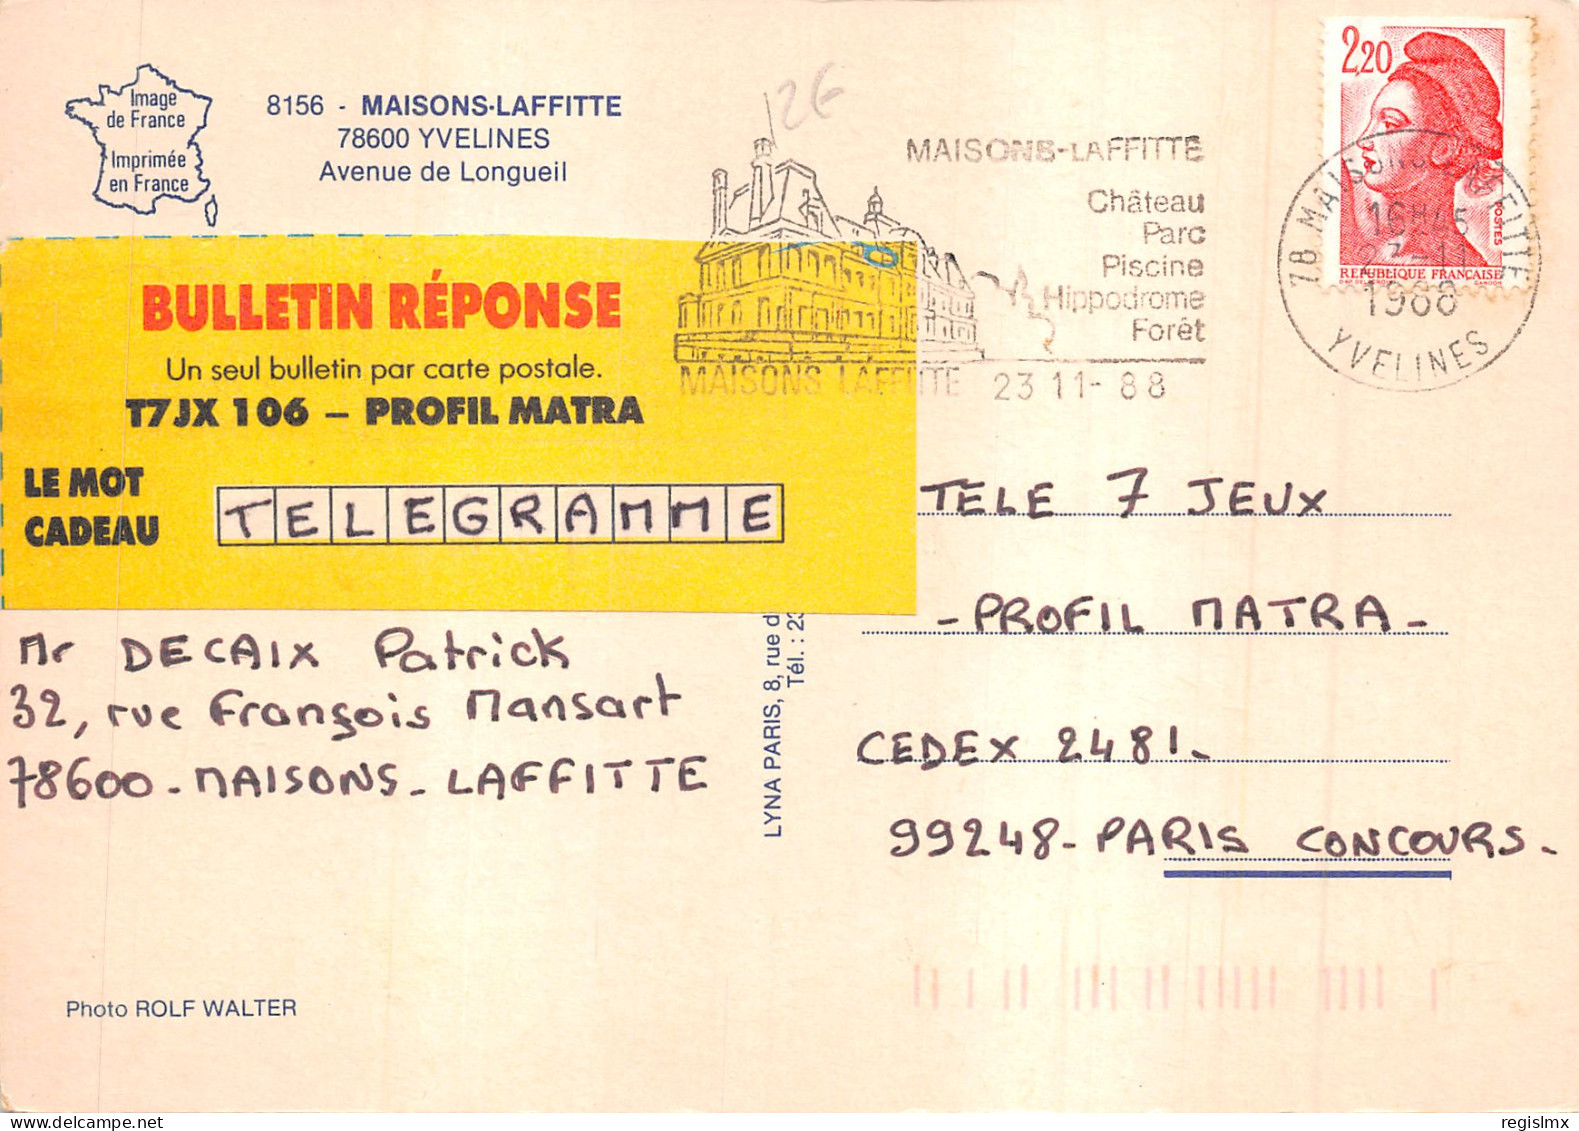 Image
de France
Imprimée
en France
8156 - MAISONS-LAFFITTE
78600 YVELINES
Avenue de Longueil
2€
MAISONS-LAFFITTE
Château
Parc
Piscine
Hippodrome
Forêt
MAISONS LAFFITTE 23 11-88
2,20
POSTES
REPUBLIQUE FRANÇAISE
GANDON
78 MAISONS-LAFFITTE
16H45
23-11
1988
YVELINES
BULLETIN RÉPONSE
Un seul bulletin par carte postale.
T7JX 106 – PROFIL MATRA
LE MOT
CADEAU
TELEGRAMME
Mr DECAIX Patrick
32, rue François Mansart
78600 - MAISONS - LAFFITTE
LYNA PARIS, 8, rue d
Tél. : 23
TELE 7 JEUX
- PROFIL MATRA -
CEDEX 2481 -
99248 - PARIS CONCOURS -
Photo ROLF WALTER
regislmx